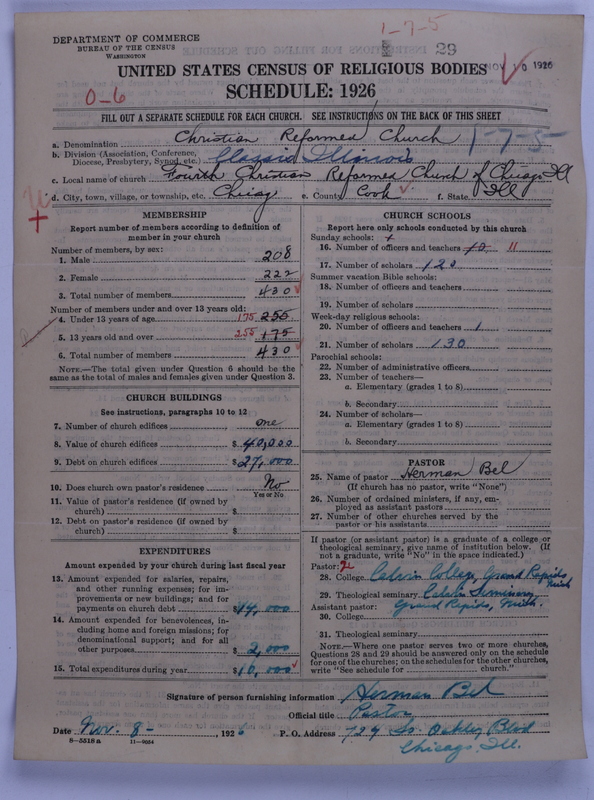 1-7-5
DEPARTMENT OF COMMERCE
BUREAU OF THE CENSUS
WASHINGTON
29
NOV 10 1926
UNITED STATES CENSUS OF RELIGIOUS BODIES
0-6
SCHEDULE: 1926
FILL OUT A SEPARATE SCHEDULE FOR EACH CHURCH. SEE INSTRUCTIONS ON THE BACK OF THIS SHEET
a. Denomination Christian Reformed Church 1-7-5
b. Division (Association, Conference, Diocese, Presbytery, Synod, etc.) Classis Illinois
c. Local name of church Fourth Christian Reformed Church of Chicago Ill
d. City, town, village, or township, etc. Chicag e. County Cook f. State Ill
MEMBERSHIP
Report number of members according to definition of
member in your church
Number of members, by sex:
1. Male 208
2. Female 222
3. Total number of members 430
Number of members under and over 13 years old:
4. Under 13 years of age 175 255
5. 13 years old and over 255 175
6. Total number of members 430
NOTE.—The total given under Question 6 should be the
same as the total of males and females given under Question 3.
CHURCH BUILDINGS
See instructions, paragraphs 10 to 12
7. Number of church edifices one
8. Value of church edifices $40,000
9. Debt on church edifices $27,000
10. Does church own pastor's residence? No
Yes or No
11. Value of pastor's residence (if owned by
church) $
12. Debt on pastor's residence (if owned by
church) $
EXPENDITURES
Amount expended by your church during last fiscal year
13. Amount expended for salaries, repairs,
and other running expenses; for im-
provements or new buildings; and for
payments on church debt $14,000
14. Amount expended for benevolences, in-
cluding home and foreign missions; for
denominational support; and for all
other purposes $2,000
15. Total expenditures during year $16,000
CHURCH SCHOOLS
Report here only schools conducted by this church
Sunday schools:
16. Number of officers and teachers 10 11
17. Number of scholars 120
Summer vacation Bible schools:
18. Number of officers and teachers
19. Number of scholars
Week-day religious schools:
20. Number of officers and teachers 1
21. Number of scholars 130
Parochial schools:
22. Number of administrative officers
23. Number of teachers—
a. Elementary (grades 1 to 8)
b. Secondary
24. Number of scholars—
a. Elementary (grades 1 to 8)
b. Secondary
PASTOR
25. Name of pastor Herman Bel
(If church has no pastor, write "None")
26. Number of ordained ministers, if any, em-
ployed as assistant pastors
27. Number of other churches served by the
pastor or his assistants
If pastor (or assistant pastor) is a graduate of a college or
theological seminary, give name of institution below. (If
not a graduate, write "No" in the space indicated.)
Pastor: 2
28. College Calvin College, Grand Rapids, Mich
29. Theological seminary Calvin Seminary
Assistant pastor: Grand Rapids, Mich.
30. College
31. Theological seminary
NOTE.—Where one pastor serves two or more churches,
Questions 28 and 29 should be answered only on the schedule
for one of the churches; on the schedules for the other churches,
write "See schedule for church."
Signature of person furnishing information Herman Bel
Official title Pastor
Date Nov. 8- , 1926 P. O. Address 729 So. Oakley Blvd
8-5518 a 11-9054
Chicago, Ill.